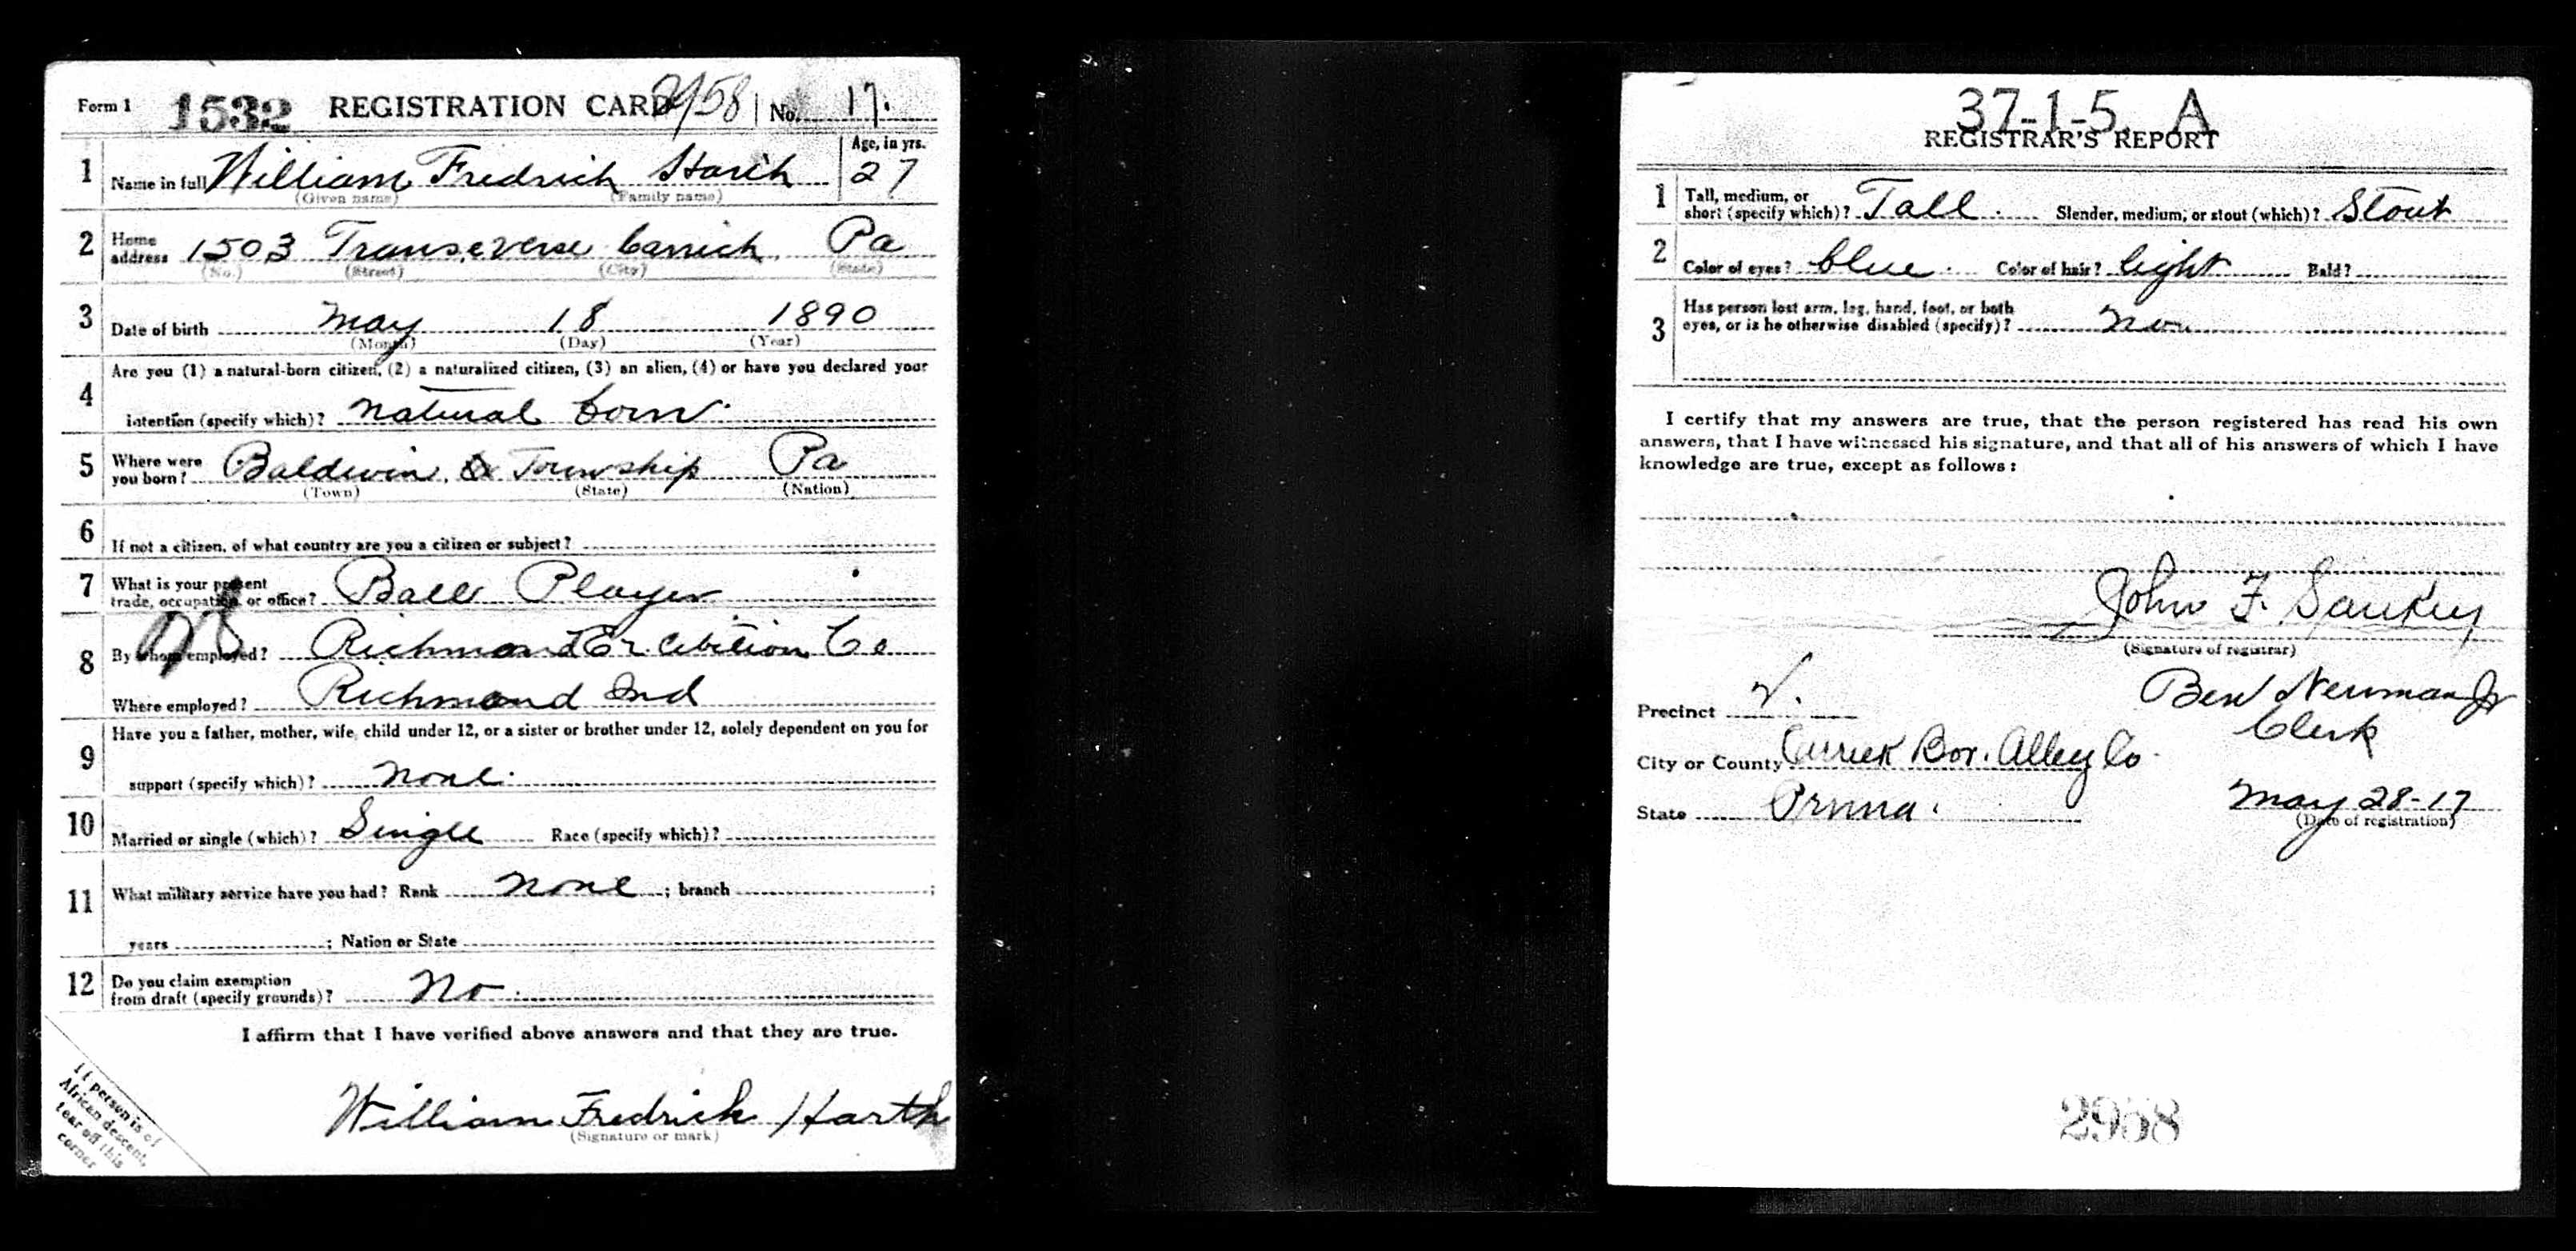 Form 1 1532 REGISTRATION CARD 2958 No. 17.
Age, in yrs.
1 Name in full William Fredrich Harth 27
(Given name) (Family name)
2 Home address 1503 Transeverse Carrick Pa
(No.) (Street) (City) (State)
3 Date of birth May 18 1890
(Month) (Day) (Year)
4 Are you (1) a natural-born citizen, (2) a naturalized citizen, (3) an alien, (4) or have you declared your
intention (specify which)? natural born.
5 Where were you born? Baldwin Township Pa
(Town) (State) (Nation)
6 If not a citizen, of what country are you a citizen or subject?
7 What is your present trade, occupation, or office? Ball Player
8 By whom employed? Richmond Co
Where employed? Richmond Ind
9 Have you a father, mother, wife, child under 12, or a sister or brother under 12, solely dependent on you for
support (specify which)? none.
10 Married or single (which)? Single Race (specify which)?
11 What military service have you had? Rank none ; branch ;
years ; Nation or State
12 Do you claim exemption from draft (specify grounds)? No.
I affirm that I have verified above answers and that they are true.
William Fredrick Harth
(Signature or mark)
If person is of
African descent,
tear off this
corner
37-1-5. A
REGISTRAR'S REPORT
1 Tall, medium, or short (specify which)? Tall. Slender, medium, or stout (which)? Stout
2 Color of eyes? blue. Color of hair? light Bald?
3 Has person lost arm, leg, hand, foot, or both
eyes, or is he otherwise disabled (specify)?
I certify that my answers are true, that the person registered has read his own
answers, that I have witnessed his signature, and that all of his answers of which I have
knowledge are true, except as follows:
John F. Sankey
(Signature of registrar)
Precinct Ben Newman Jr
Clerk
City or County Carrick Bor. Alleg Co.
State Penna. May 28-17
(Date of registration)
2958